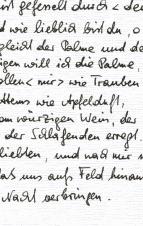 ist gefesselt durch < den
d wie lieblich bist du, o
gleicht der Palme und de
igen will ich die Palme,
ollen < mir > wie Trauben
Atems wie Apfelduft,
em würzigen Wein, der
der Schlafenden erregt.
liebten, und nach mir s
lass uns aufs Feld hinau
Nacht verbringen.